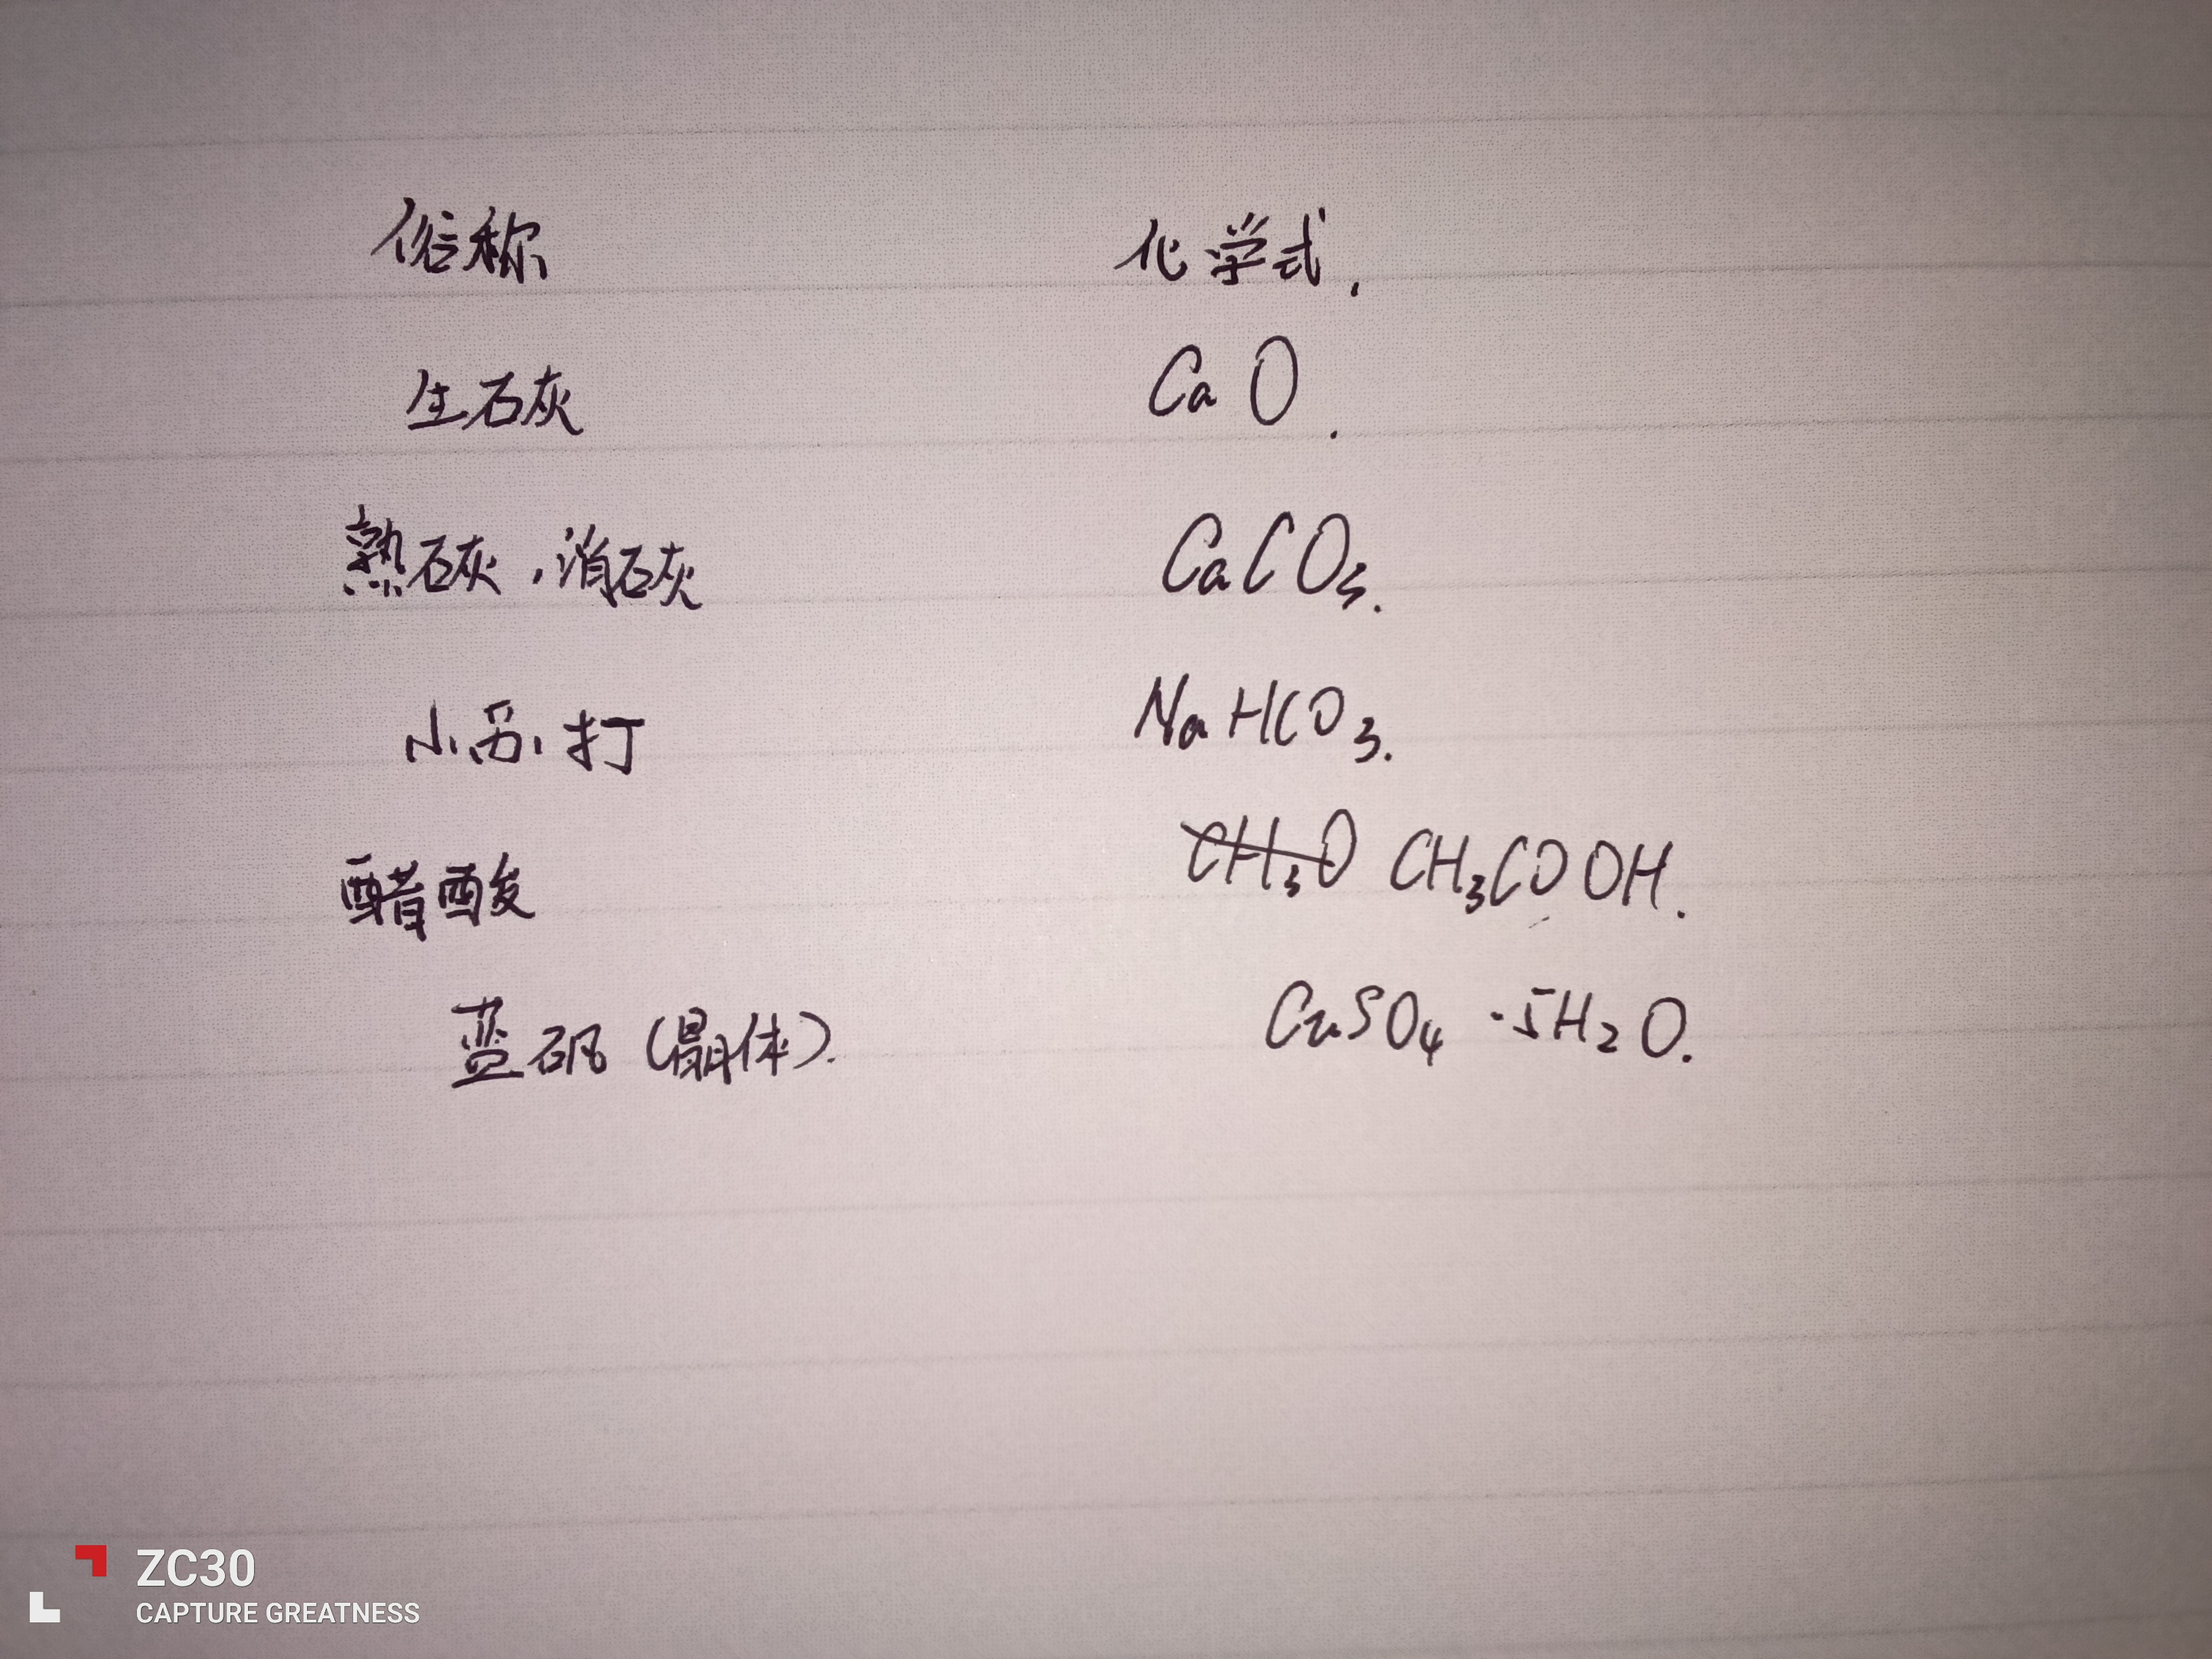 俗称 化学式.
生石灰 CaO.
熟石灰,消石灰 CaCO3.
小苏打 NaHCO3.
醋酸 CH3O CH3COOH.
蓝矾(晶体). CuSO4·5H2O.
ZC30
CAPTURE GREATNESS